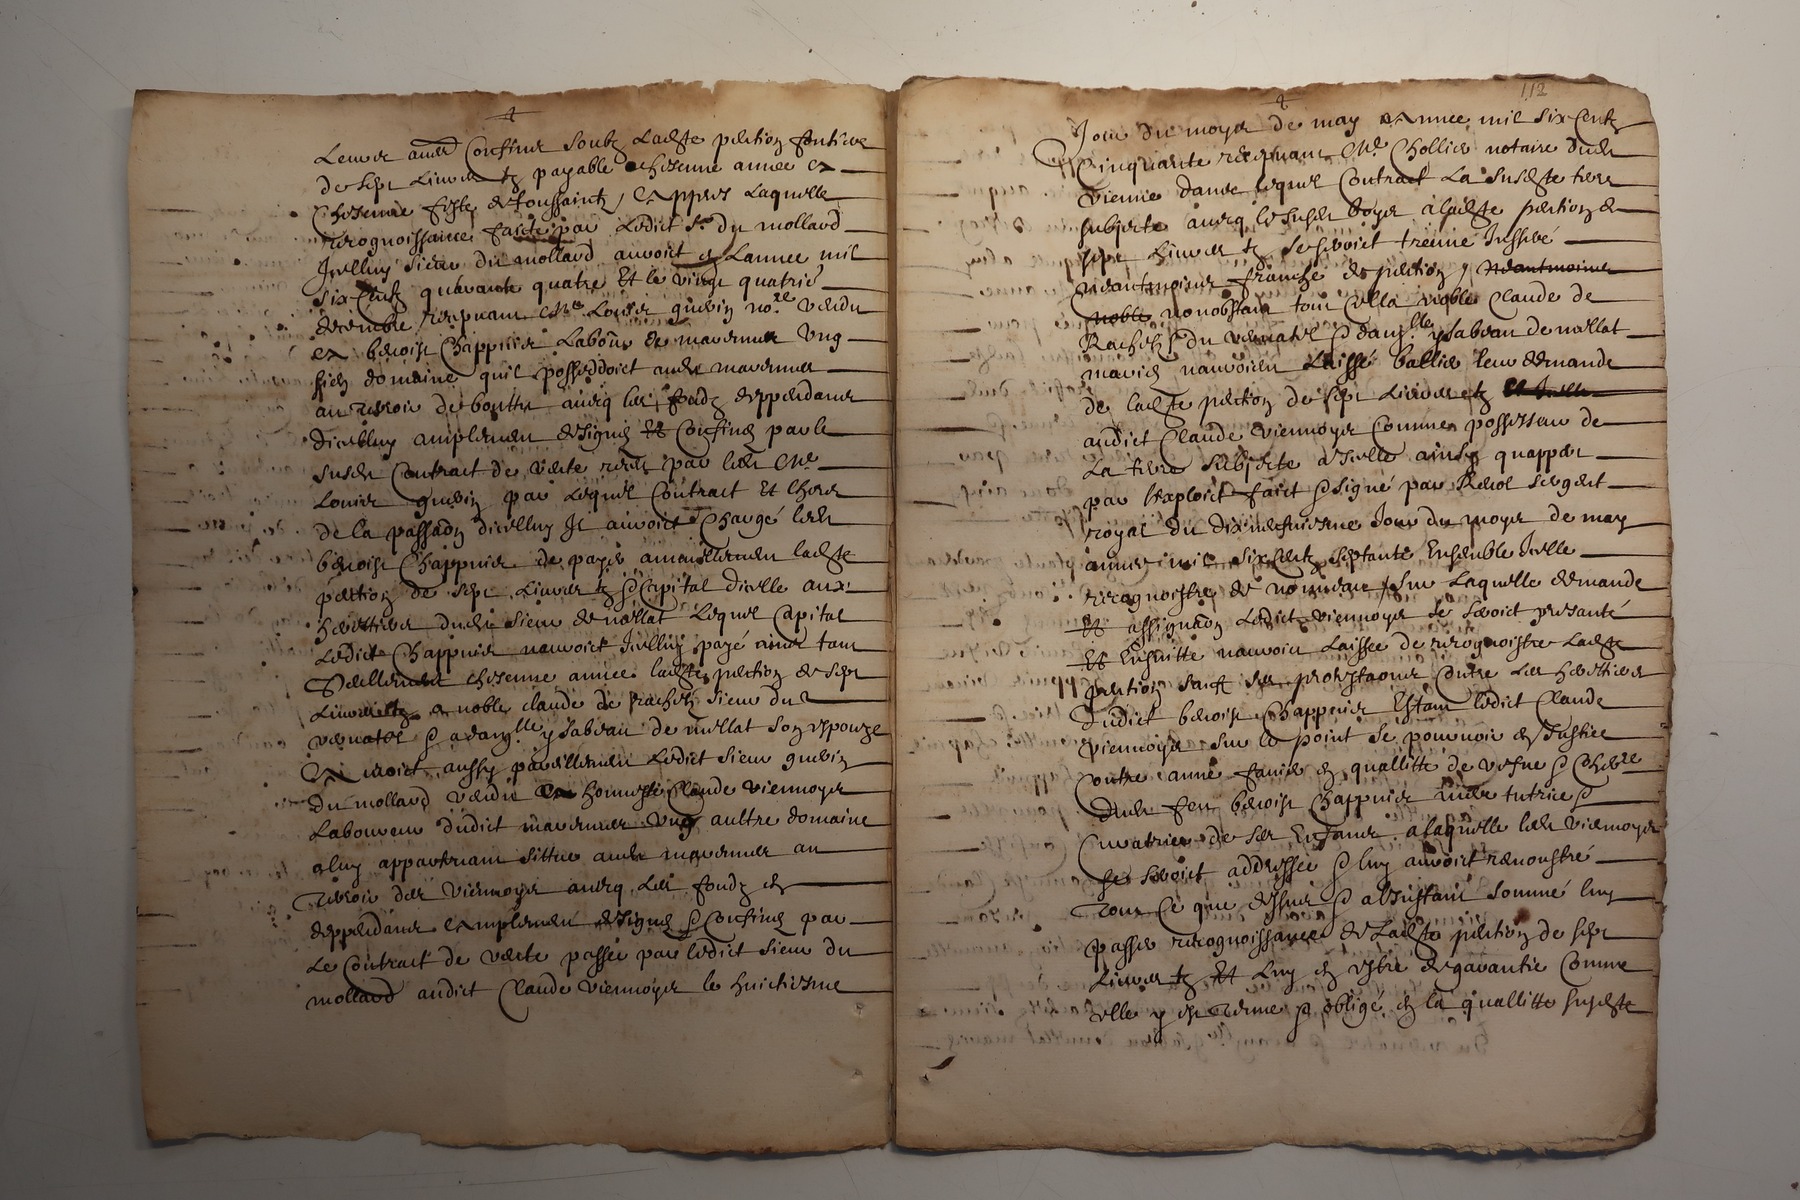 Leurs aud confins soubz ladte pention fontiere
de sept livres tz payable chesenne annee en
chesenne feste de toussaintz, Appres laquelle
recognoissance faicte par ledict sr du mollard
Icelluy sieur du mollard auroict en lannee mil
six centz quarante quatre Et le vingt quatrie
decembre recepuant Me Louis guerin nore vendu
en benoist Chappuis Labour de mavernier ung
sien domaine quil possedoict aud mavernier
au terroir de bouttu avecq les fondz deppendans
dicelluy amplemen designes Et confines par le
susdt Contract de vente receu par led Me
Louis guerin par lequel Contract Et lhors
de la passaon dicelluy Il auroict Chargé led
benoist Chappuis de payer annuellemen ladte
pention de sept livres tz & capital dicelle aux
herettiers dud sieur de nollat lequel capital
ledict Chappuis nauroict Icelluy payé ains tant
seullement chesenne annee ladte pention de sept
livres tz a noble claude de Rachetz sieur du
vernatel & a damlle ysabeau de nollat son espouze
Auroict aussy pareillemen ledict sieur guerin
du mollard vendu a honneste Claude viennoys
Laboureur dudict mavernier ung aultre domaine
a luy appartenant sittue aud mavernier au
Terroir des viennoys avecq les fondz en
deppendans Amplemen designes & confines par
Le Contract de vente passee par ledict sieur du
mollard audict Claude viennoys le huictiesme
112
Jour du moys de may Annee mil six centz
Cinquante recepuant Me Chollier notaire dud
vienne dans lequel Contract La susdte terre
subjecte avecq le susdt boys a ladte pention de
sept livres tz se seroict treuvé Inseré
neantmoins franche de pention, neantmoins
noble nonobstant tout cella noble Claude de
Rachetz sr du vernatel & damlle ysabeau de nollat
maries nauroien Laissé bailler leur demande
de ladte pention de sept livres tz et Icelle
audict Claude viennoys Comme possesseur de
La terre subjecte a Icelle ainsy quappert
par lexploict faict & signé par Revol sergent
royal du dixneufviesme Jour du moys de may
annee mil six centz septante Ensemble Icelle
recognoistre de nouveau, sur Laquelle demande
Et assignaon Ledict viennoys se seroict presanté
Et Ensuitte nauroit Laissee de recognoistre Ladte
pention sauf ses protestaons contre Les herettiers
dudict benoist Chappuis Estant ledict Claude
viennoys sur le point se pourvoir en Justice
contre anne favier en quallitté de vefve &
dud feu benoist Chappuis mere tutrice &
Curatrice de ses Enfans a laquelle led viennoys
se seroict addressee & luy auroict remonstré
Tout Ce que dessus & a linstant sommé luy
passer recognoissance de Ladte pention de sept
livres tz Et Luy en estre de garantie comme
elle y est tenue & obligé en la quallitté susdte